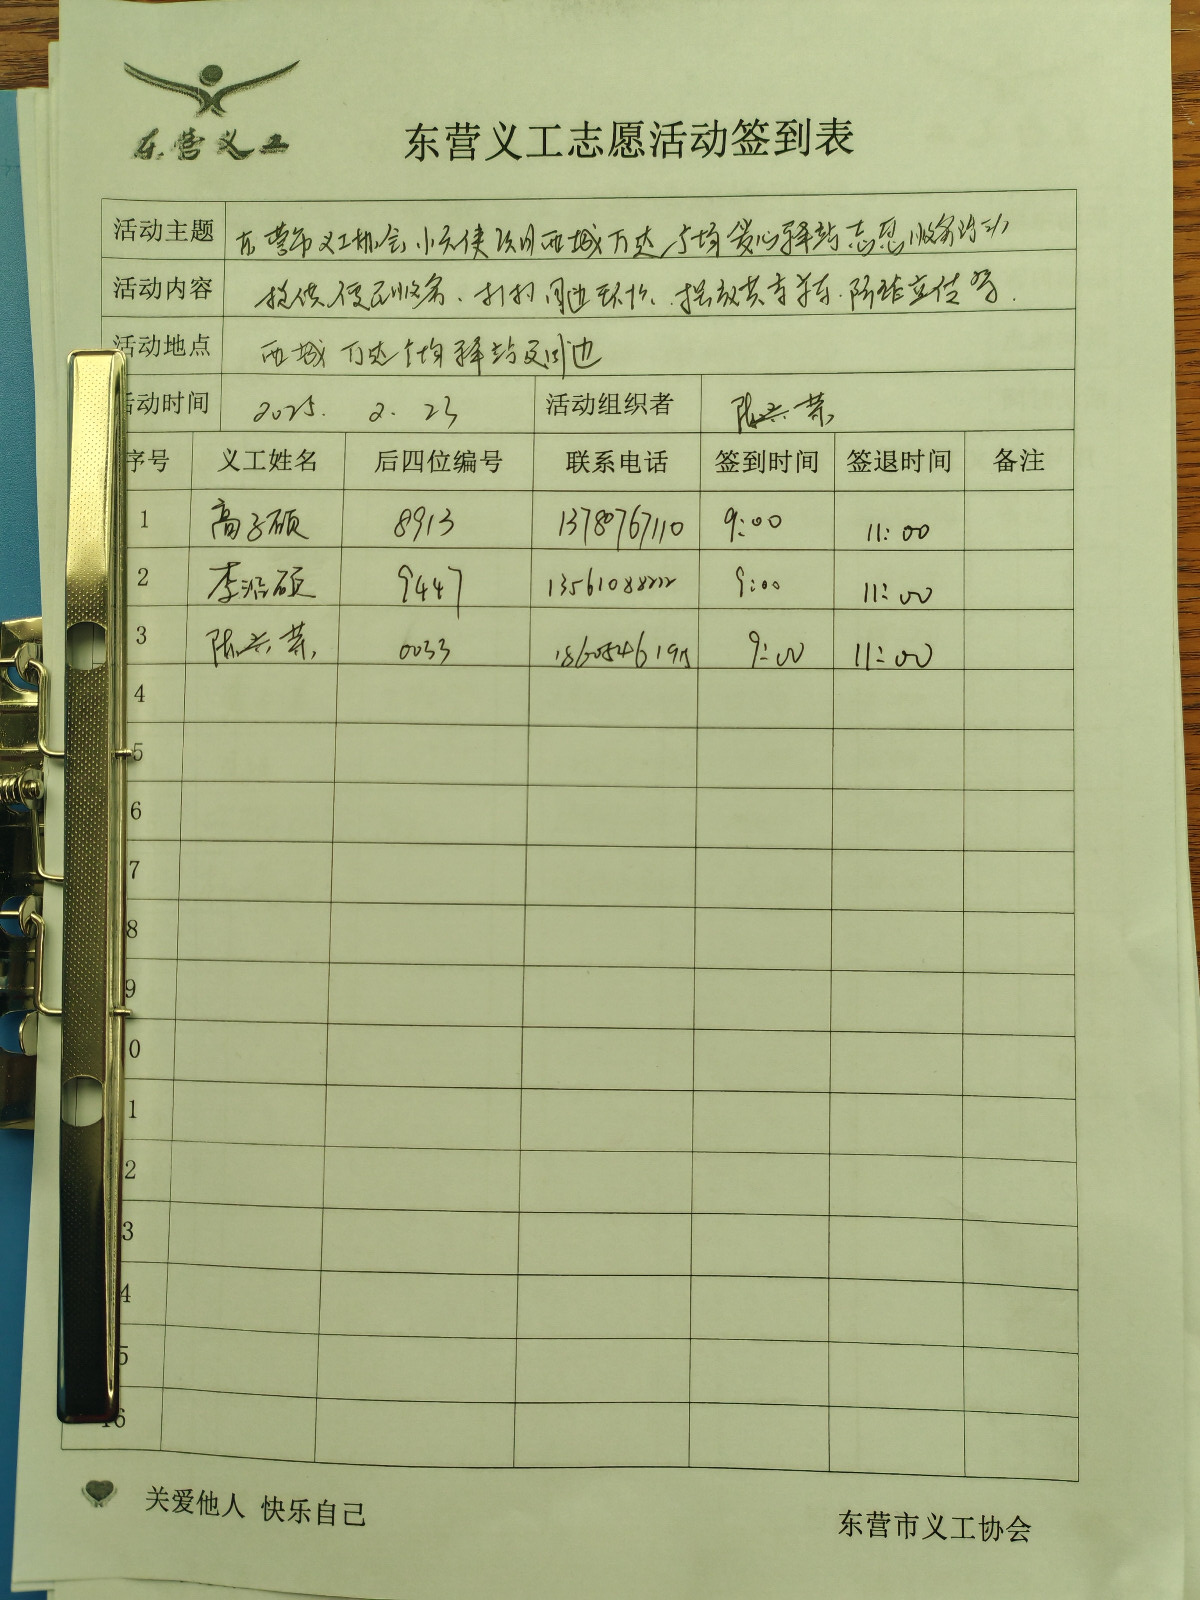 东营义工
东营义工志愿活动签到表
活动主题 东营市义工协会小天使项目西城万达广场爱心驿站志愿服务活动
活动内容 提供便民服务、打扫周边环境、摆放共享单车、
活动地点 西城万达广场驿站及周边
活动时间 2025. 2. 23 活动组织者 陈兴荣
序号 义工姓名 后四位编号 联系电话 签到时间 签退时间 备注
1 高子硕 8913 13780767110 9:00 11:00
2 李浴硕 9447 13561088222 9:00 11:00
3 陈兴荣 0033 9:00 11:00
4
5
6
7
8
9
0
1
2
3
4
5
16
关爱他人 快乐自己
东营市义工协会